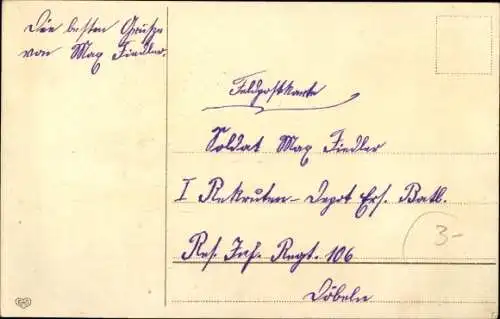 Die besten Grüße
von Max Fiedler.
Feldpostkarte
Soldat Max Fiedler
I Rekruten-Depot Ers. Batl.
Res. Inf. Regt. 106
Döbeln
3-